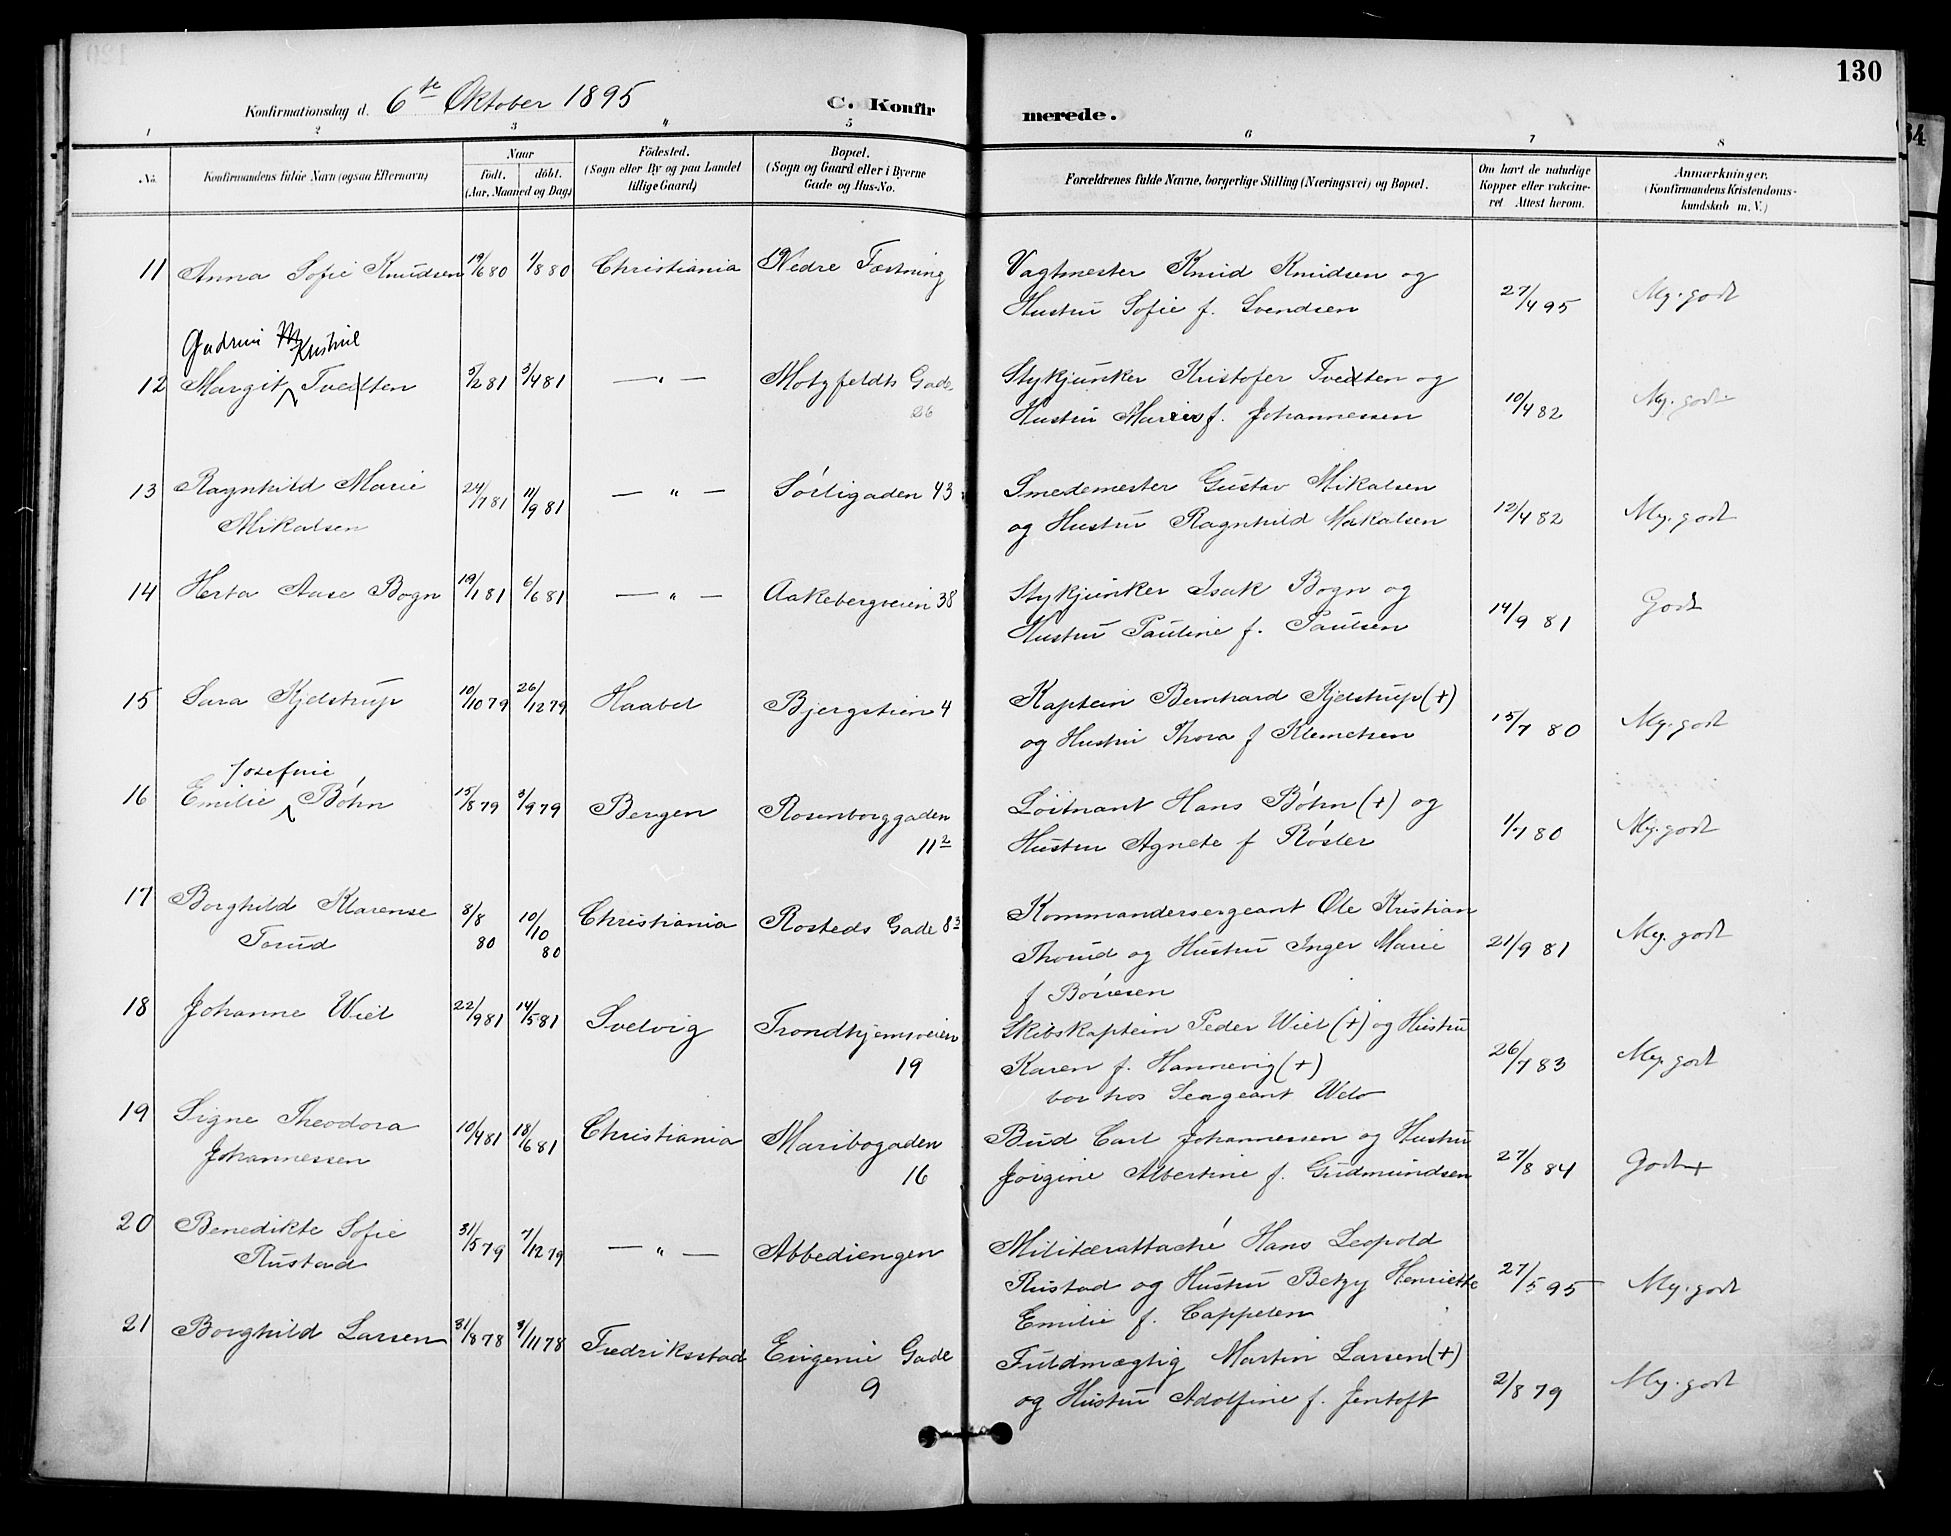 130
Konfirmationsdag d. 6te Oktober 1895 C. Konfirmerede.
1 2 3 4 5 6 7 8
No.
Konfirmandens fulde Navn (ogsaa Efternavn)
Naar
födt. döbt.
(Aar, Maaned og Dag)
Födested.
(Sogn eller By og paa Landet
tillige Gaard)
Bopæl.
(Sogn og Gaard eller i Byerne
Gade og Hus-No.
Forældrenes fulde Navne, borgerlige Stilling (Næringsvei) og Bopæl.
Om havt de naturlige
Kopper eller vakcine-
ret Attest herom.
Anmærkninger.
(Konfirmandens Kristendoms-
kundskab m. V.)
11 Anna Sofie Knudsen 19/6 80 1/8 80 Christiania Nedre Fæstning Vagtmester Knud Knudsen og
Hustru Sofie f. Svendsen 27/4 95 Mg. godt
Gudrun Kristine
12 Margit Tvedten 5/2 81 3/4 81 — " — Motzfeldts Gade Stykjunker Kristofer Tvedten og
26 Hustru Marie f. Johannessen 10/4 82 Mg. godt
13 Ragnhild Marie 24/7 81 11/9 81 — " — Sörligaden 43 Smedemester Gustav Mikalsen
Mikalsen og Hustru Ragnhild Mikalsen 12/4 82 Mg. godt
14 Herta Aase Bogn 19/1 81 6/6 81 — " — Aakebergveien 38 Stykjunker Isak Bogn og
Hustru Pauline f. Paulsen 14/9 81 Godt
15 Sara Kjelstrup 10/10 79 26/12 79 Haabet Bjergstien 4 Kaptein Bernhard Kjelstrup (+)
og Hustru Thora f Klemetsen 15/7 80 Mg. godt
Josefine
16 Emilie Böhn 15/8 79 3/9 79 Bergen Rosenborggaden Löitnant Hans Böhn (+) og
11 2 Hustru Agnete f Rösler 1/7 80 Mg. godt
17 Borghild Klarense 8/8 80 10/10 80 Christiania Rosteds Gade 8 3 Kommandersergeant Ole Kristian
Torud Thorud og Hustru Inger Marie 21/9 81 Mg. godt
f Börresen
18 Johanne Wiel 22/9 81 14/5 81 Svelvig Trondhjemsveien Skibskaptein Peder Wiel (+) og Hustru
19 Karen f. Hannevig (+) 26/7 83 Mg. godt
bor hos Sergeant
19 Signe Theodora 10/4 81 18/6 81 Christiania Maribogaden Bud Carl Johannessen og Hustru
Johannessen 16 Jörgine Albertine f. Gudmundsen 27/8 84 Godt +
20 Benedikte Sofie 31/5 79 7/12 79 — " — Abbediengen Militærattaché Hans Leopold
Rustad Rustad og Hustru Betzy Henriette 27/5 95 Mg. godt
Emilie f. Cappelen
21 Borghild Larsen 31/8 78 3/11 78 Fredriksstad Eugenie Gade Fuldmægtig Martin Larsen (+)
9 og Hustru Adolfine f. Jentoft 2/8 79 Mg. godt